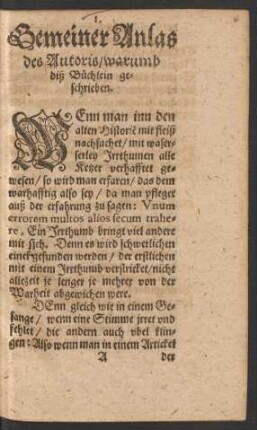 1.
Gemeiner Anlas
des Autoris/warumb
diß Büchlein ge-
schrieben.
WEnn man inn den
alten Historiē mit fleiß
nachsuchet/mit waser-
serley Jrrthumen alle
Ketzer verhafftet ge-
wesen/so wird man erfaren/das dem
warhafftig also sey/da man pfleget
auß der erfahrung zu sagen: Vnum
errorem multos alios secum trahe-
re, Ein Jrrthumb bringt viel andere
mit sich. Denn es wird schwerlichen
einer gefunden werden/der erstlichen
mit einem Jrrthumb verstricket/nicht
allezeit je lenger je mehrer von der
Warheit abgewichen were.
DEnn gleich wie in einem Ge-
sange/wenn eine Stimme jrret vnd
fehlet/die andern auch vbel klin-
gen: Also wenn man in einem Artickel
A der